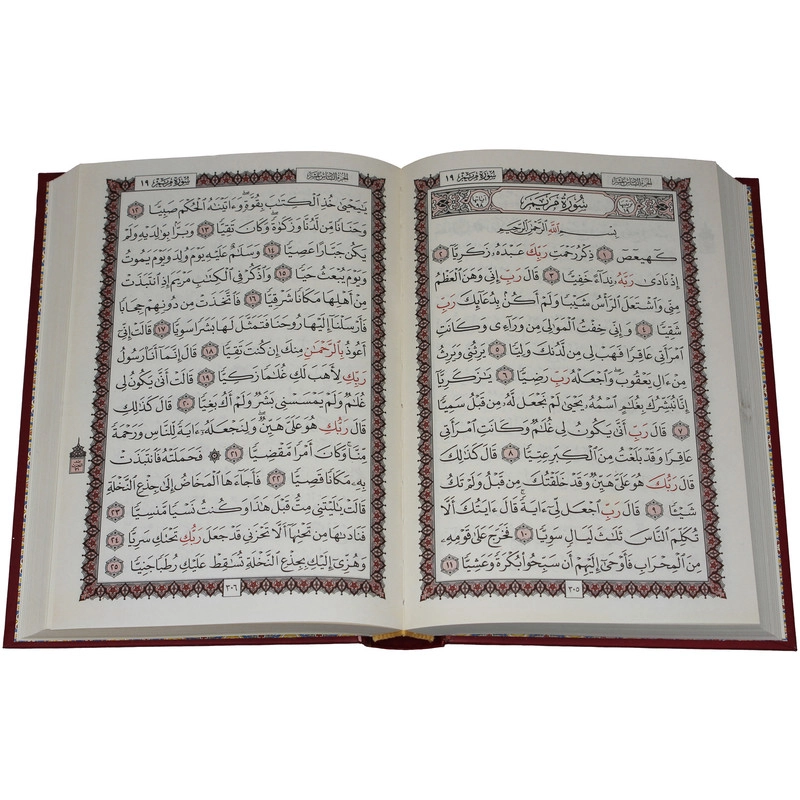 الجزء السادس عشر سورة مريم ١٩
سورة مريم
بِسْمِ اللَّهِ الرَّحْمَٰنِ الرَّحِيمِ
كٓهيعٓصٓ ١ ذِكْرُ رَحْمَتِ رَبِّكَ عَبْدَهُۥ زَكَرِيَّآ ٢
إِذْ نَادَىٰ رَبَّهُۥ نِدَآءً خَفِيًّا ٣ قَالَ رَبِّ إِنِّى وَهَنَ ٱلْعَظْمُ
مِنِّى وَٱشْتَعَلَ ٱلرَّأْسُ شَيْبًا وَلَمْ أَكُنۢ بِدُعَآئِكَ رَبِّ
شَقِيًّا ٤ وَإِنِّى خِفْتُ ٱلْمَوَٰلِىَ مِن وَرَآءِى وَكَانَتِ
ٱمْرَأَتِى عَاقِرًا فَهَبْ لِى مِن لَّدُنكَ وَلِيًّا ٥ يَرِثُنِى وَيَرِثُ
مِنْ ءَالِ يَعْقُوبَ ۖ وَٱجْعَلْهُ رَبِّ رَضِيًّا ٦ يَٰزَكَرِيَّآ
إِنَّا نُبَشِّرُكَ بِغُلَٰمٍ ٱسْمُهُۥ يَحْيَىٰ لَمْ نَجْعَل لَّهُۥ مِن قَبْلُ سَمِيًّا
٧ قَالَ رَبِّ أَنَّىٰ يَكُونُ لِى غُلَٰمٌ وَكَانَتِ ٱمْرَأَتِى
عَاقِرًا وَقَدْ بَلَغْتُ مِنَ ٱلْكِبَرِ عِتِيًّا ٨ قَالَ كَذَٰلِكَ
قَالَ رَبُّكَ هُوَ عَلَىَّ هَيِّنٌ وَقَدْ خَلَقْتُكَ مِن قَبْلُ وَلَمْ تَكُ
شَيْـًٔا ٩ قَالَ رَبِّ ٱجْعَل لِّىٓ ءَايَةً ۚ قَالَ ءَايَتُكَ أَلَّا
تُكَلِّمَ ٱلنَّاسَ ثَلَٰثَ لَيَالٍ سَوِيًّا ١٠ فَخَرَجَ عَلَىٰ قَوْمِهِۦ
مِنَ ٱلْمِحْرَابِ فَأَوْحَىٰٓ إِلَيْهِمْ أَن سَبِّحُوا۟ بُكْرَةً وَعَشِيًّا ١١
٣٠٥
الجزء السادس عشر سورة مريم ١٩
يَٰيَحْيَىٰ خُذِ ٱلْكِتَٰبَ بِقُوَّةٍ ۖ وَءَاتَيْنَٰهُ ٱلْحُكْمَ صَبِيًّا ١٢
وَحَنَانًا مِّن لَّدُنَّا وَزَكَوٰةً ۖ وَكَانَ تَقِيًّا ١٣ وَبَرًّۢا بِوَٰلِدَيْهِ وَلَمْ
يَكُن جَبَّارًا عَصِيًّا ١٤ وَسَلَٰمٌ عَلَيْهِ يَوْمَ وُلِدَ وَيَوْمَ يَمُوتُ
وَيَوْمَ يُبْعَثُ حَيًّا ١٥ وَٱذْكُرْ فِى ٱلْكِتَٰبِ مَرْيَمَ إِذِ ٱنتَبَذَتْ
مِنْ أَهْلِهَا مَكَانًا شَرْقِيًّا ١٦ فَٱتَّخَذَتْ مِن دُونِهِمْ حِجَابًا
فَأَرْسَلْنَآ إِلَيْهَا رُوحَنَا فَتَمَثَّلَ لَهَا بَشَرًا سَوِيًّا ١٧ قَالَتْ إِنِّىٓ
أَعُوذُ بِٱلرَّحْمَٰنِ مِنكَ إِن كُنتَ تَقِيًّا ١٨ قَالَ إِنَّمَآ أَنَا۠ رَسُولُ
رَبِّكِ لِأَهَبَ لَكِ غُلَٰمًا زَكِيًّا ١٩ قَالَتْ أَنَّىٰ يَكُونُ لِى
غُلَٰمٌ وَلَمْ يَمْسَسْنِى بَشَرٌ وَلَمْ أَكُ بَغِيًّا ٢٠ قَالَ كَذَٰلِكِ
قَالَ رَبُّكِ هُوَ عَلَىَّ هَيِّنٌ ۖ وَلِنَجْعَلَهُۥٓ ءَايَةً لِّلنَّاسِ وَرَحْمَةً
مِّنَّا ۚ وَكَانَ أَمْرًا مَّقْضِيًّا ٢١ ۞ فَحَمَلَتْهُ فَٱنتَبَذَتْ
بِهِۦ مَكَانًا قَصِيًّا ٢٢ فَأَجَآءَهَا ٱلْمَخَاضُ إِلَىٰ جِذْعِ ٱلنَّخْلَةِ
قَالَتْ يَٰلَيْتَنِى مِتُّ قَبْلَ هَٰذَا وَكُنتُ نَسْيًا مَّنسِيًّا ٢٣
فَنَادَىٰهَا مِن تَحْتِهَآ أَلَّا تَحْزَنِى قَدْ جَعَلَ رَبُّكِ تَحْتَكِ سَرِيًّا ٢٤
وَهُزِّىٓ إِلَيْكِ بِجِذْعِ ٱلنَّخْلَةِ تُسَٰقِطْ عَلَيْكِ رُطَبًا جَنِيًّا ٢٥
٣٠٦